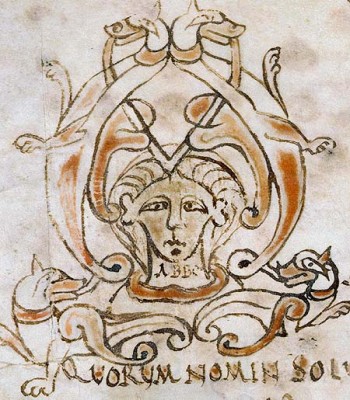 ABBS
QUORUM NOMIN SOLU